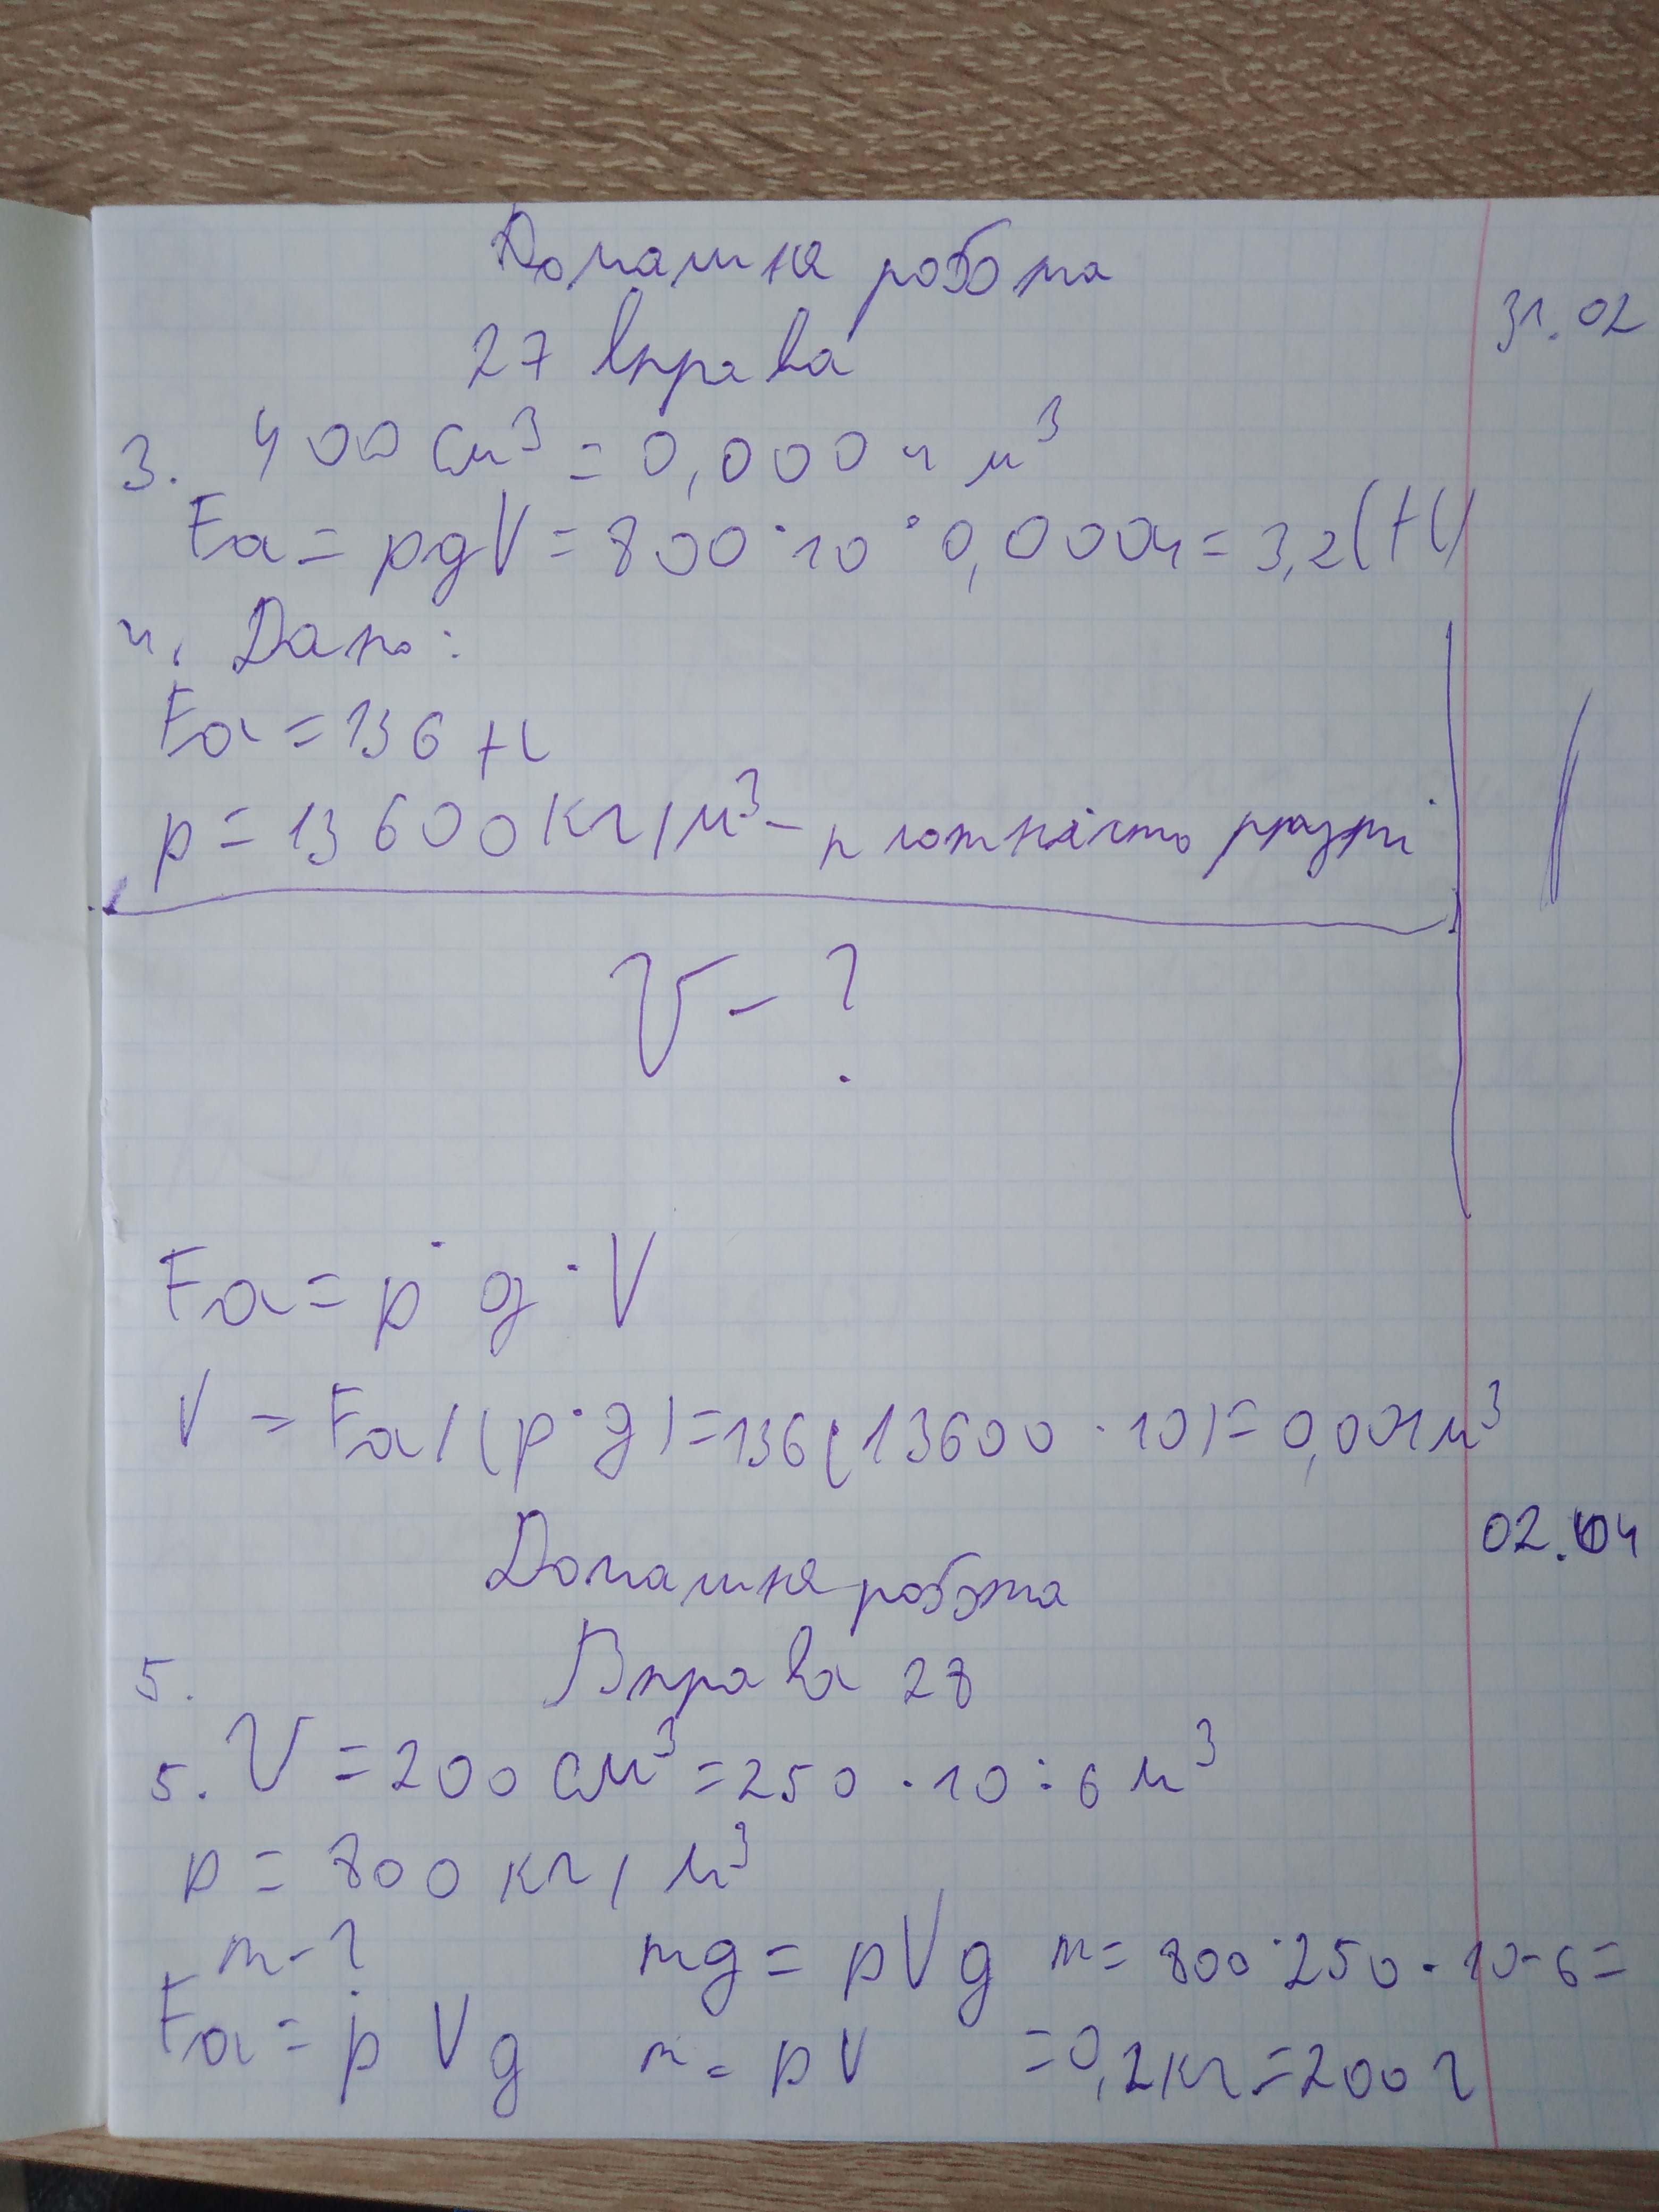 Домашня робота
31.02
27 вправа
3. 400 см³ = 0,0004 м³
Fа = pgV = 800 · 10 · 0,0004 = 3,2 (Н)
4. Дано:
Fа = 136 Н
p = 13600 кг/м³ – плотність ртуті
V – ?
Fа = p · g · V
V = Fа / (p · g) = 136 (13600 · 10) = 0,001 м³
02.04
Домашня робота
Вправа 28
5.
5. V = 200 см³ = 250 · 10 ÷ 6 м³
p = 800 кг/м³
m - ? mg = pVg m = 800 · 250 · 10 - 6 =
Fа = p V g m = pV = 0,2 кг = 200 г